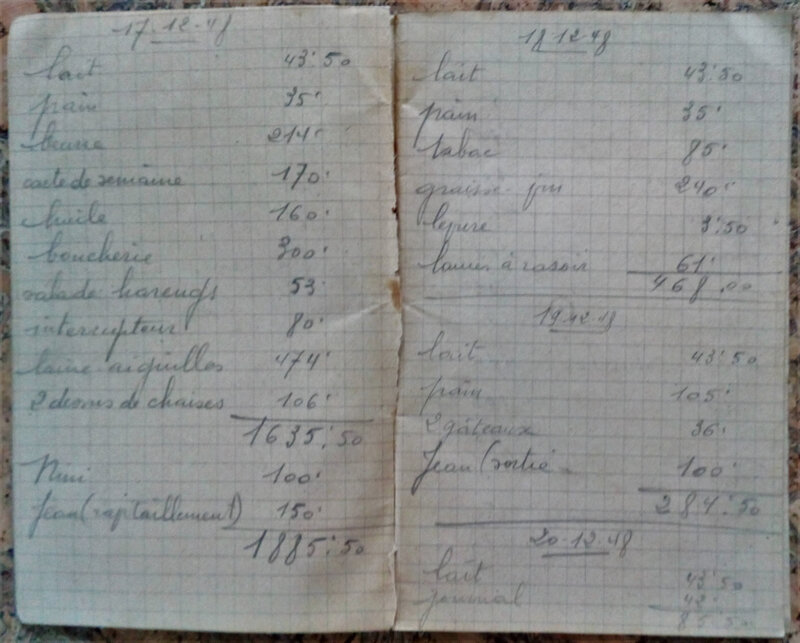 17-12-48
lait 43'50
pain 35'
beurre 214'
carte de semaine 170'
huile 160'
boucherie 300'
salade harengs 53
interrupteur 80'
laine aiguilles 474'
2 dessus de chaises 106'
1635'50
Nini 100'
Jean (raptaillement) 150'
1885'50
18-12-48
lait 43'50
pain 35'
tabac 85'
graisse 240'
lepire 3'50
lames à rasoir 61'
468,00
19-12-48
lait 43'50
pain 105'
2 gâteaux 36'
Jean (sortie 100'
284'50
20-12-48
lait 43'50
journal 42'
85'50